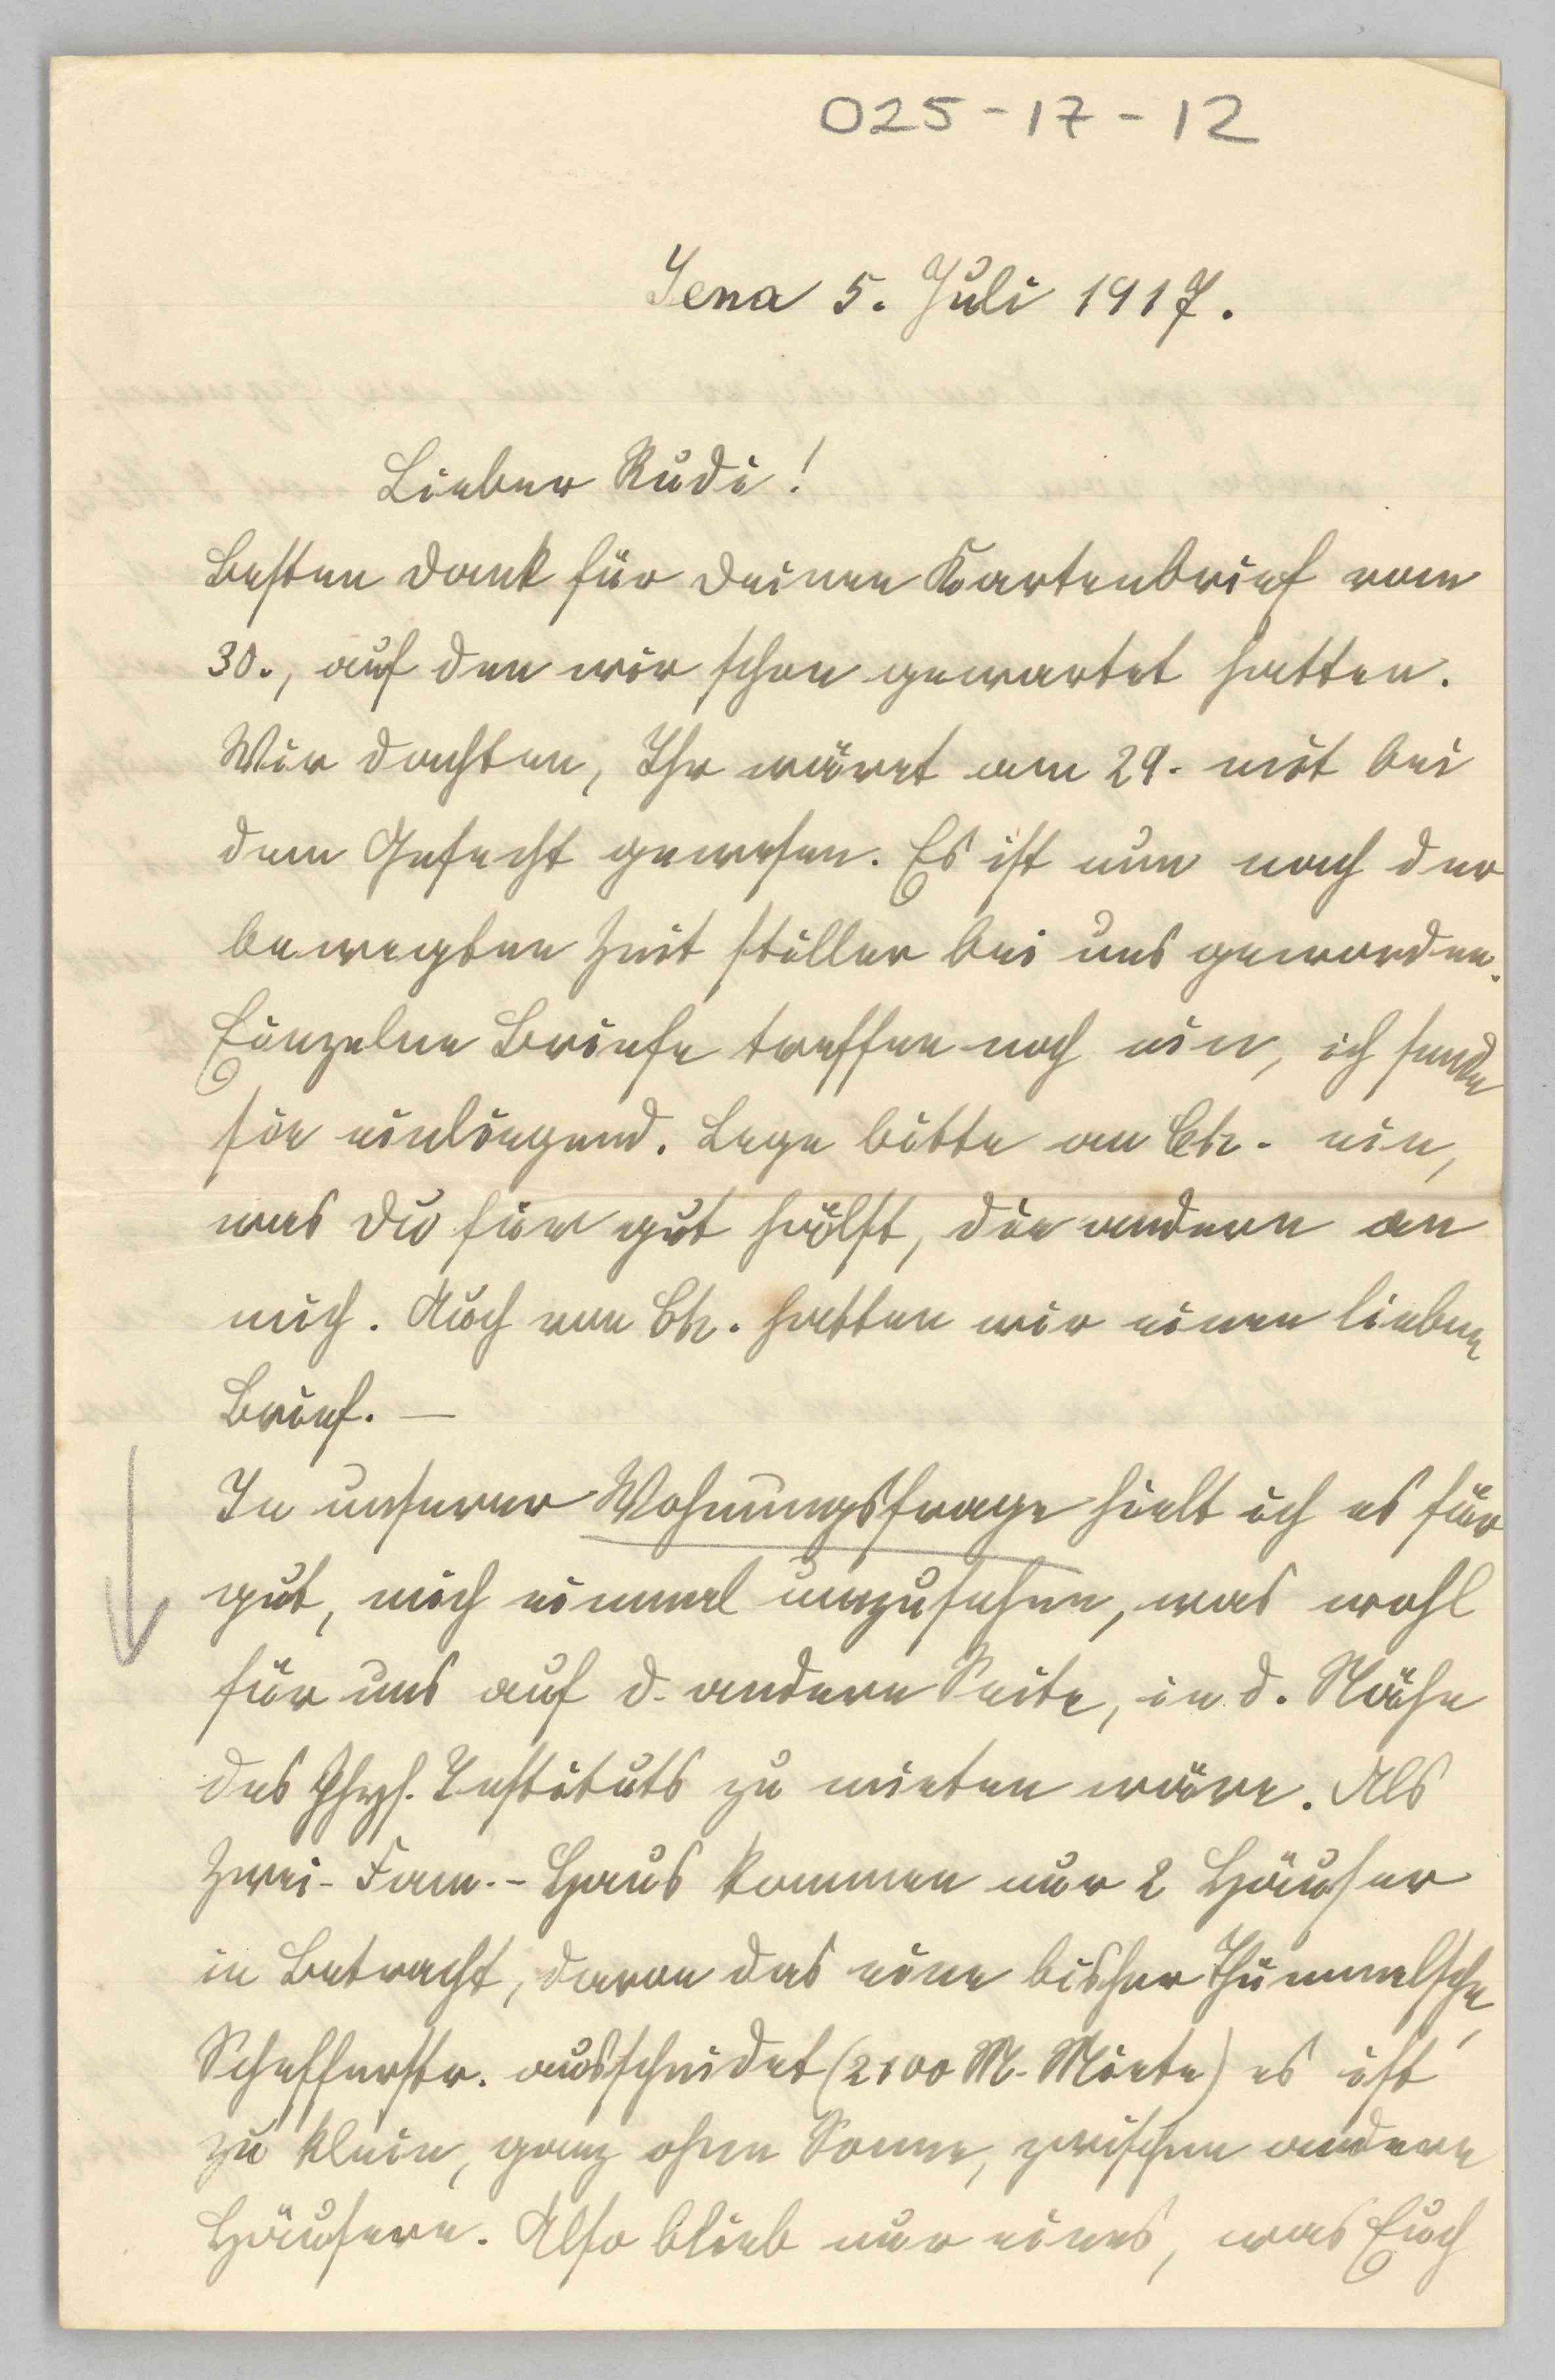 025-17-12
Jena 5. Juli 1917.
Lieber Rudi!
Besten Dank für Deinen Kartenbrief vom
30., auf den wir schon gewartet hatten.
Wir dachten, Ihr wäret am 29. mit bei
dem Gefecht gewesen. Es ist nun nach der
bewegten Zeit stiller bei uns geworden.
Einzelne Briefe treffen noch ein, ich sende
sie einliegend. Lege bitte an Ch. ein,
was Du für gut hälst, die andern an
mich. Auch von Ch. hatten wir einen lieben
Brief. —
In unserer Wohnungsfrage hielt ich es für
gut, mich einmal umzusehen, was wohl
für uns auf d. andern Seite, in d. Nähe
des Phys. Instituts zu mieten wäre. Als
Zwei-Fam.-Haus kommen nur 2 Häuser
in Betracht, davon das eine bisher Thümmelsche,
Schefferstr. ausscheidet (2100 M. Miete) es ist
zu klein, ganz ohne Sonne, zwischen andern
Häusern. Also blieb nur eines, was Euch